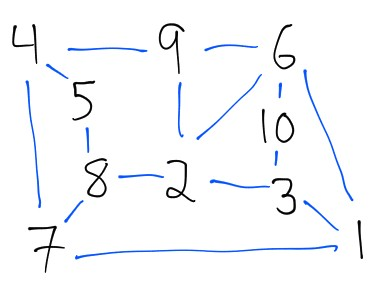 4 9 6
5
10
8 2 3
7 1